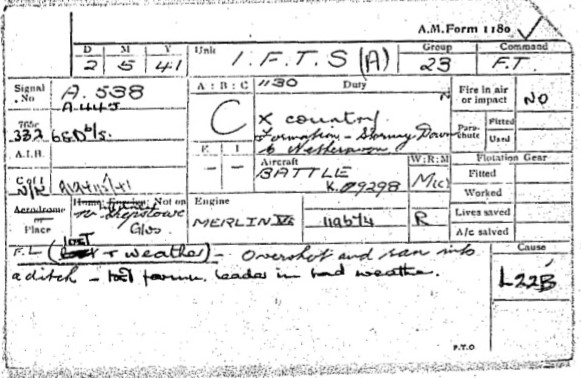 A.M. Form 1180
D M Y Unit 1. F.T.S (A) Group Command
2 5 41 23 F.T.
Signal No A. 538
A 445
A : B : C 1130 Duty
C
X country N
Formation - Stormy Down
to Netheravon
Fire in air or impact NO
Parachute Fitted
Used
765c
332
A.I.B.
E I
- -
Aircraft
BATTLE
K.9298
W:R:M
M(c)
Flotation Gear
Fitted
Worked
Lives saved
A/c salved
C of I
Aerodrome
Place
Not on
nr Chepstow
Glos
Engine
MERLIN 119574 R
F.L (lost & weather) - Overshot and ran into
a ditch - lost form. leader in bad weather.
Cause
L22B
P.T.O